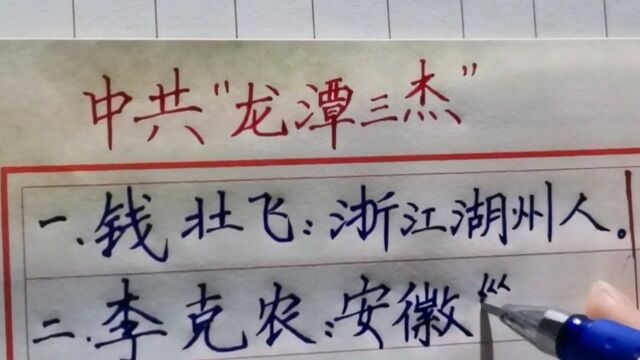 中共"龙潭三杰"
一.钱壮飞:浙江湖州人。
二.李克农:安徽